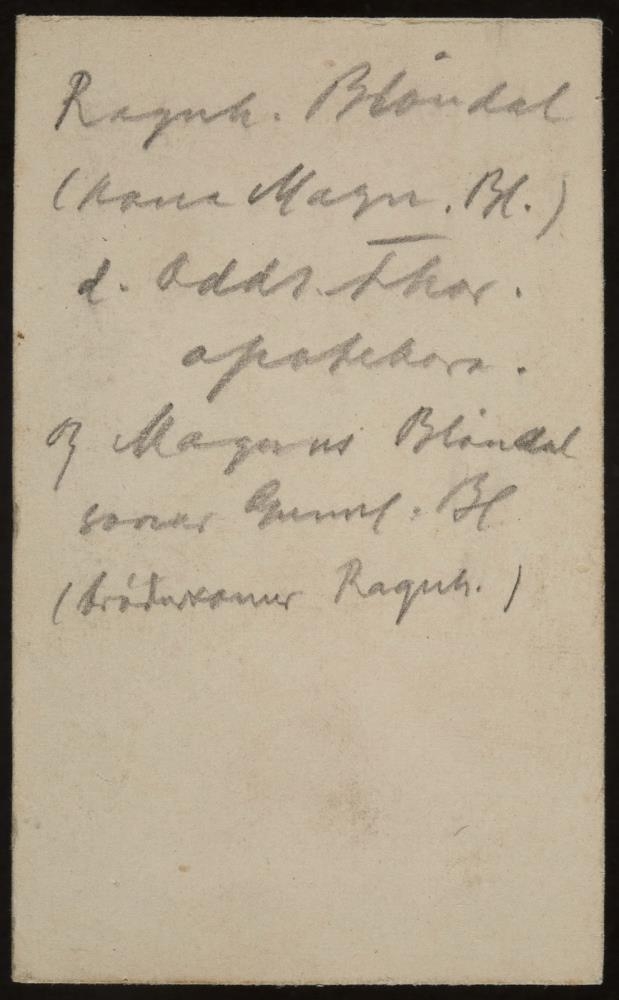 Ragnh. Blöndal
(kona Magn. Bl.)
d. Odds Thor.
apotekara.
og Magnus Blöndal
sonur Gunnl. Bl
(bróðursonur Ragnh.)